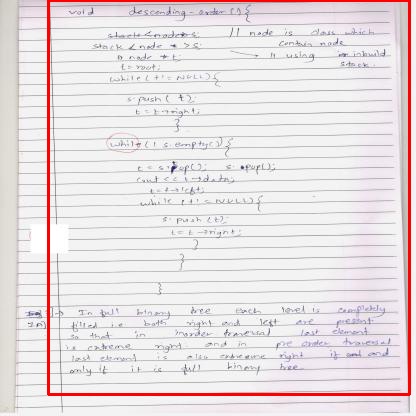 void descending-order() {
stack<node>s; // node is class which
stack <node *> s; contain node
node *t; // using inbuild
t = root; stack.
while (t != NULL) {
s.push( t );
t = t→right;
}
while (! s.empty()) {
t = s.top(); s.pop();
cout << t→data;
t = t→left;
while (t != NULL) {
s.push (t);
t = t→right;
}
}
}
→ In full binary tree each level is completely
filled i.e both right and left are present
so that in inorder traversal last element
is extreme right. and in pre order traversal
last element is also extreme right if and
only if it is full binary tree.